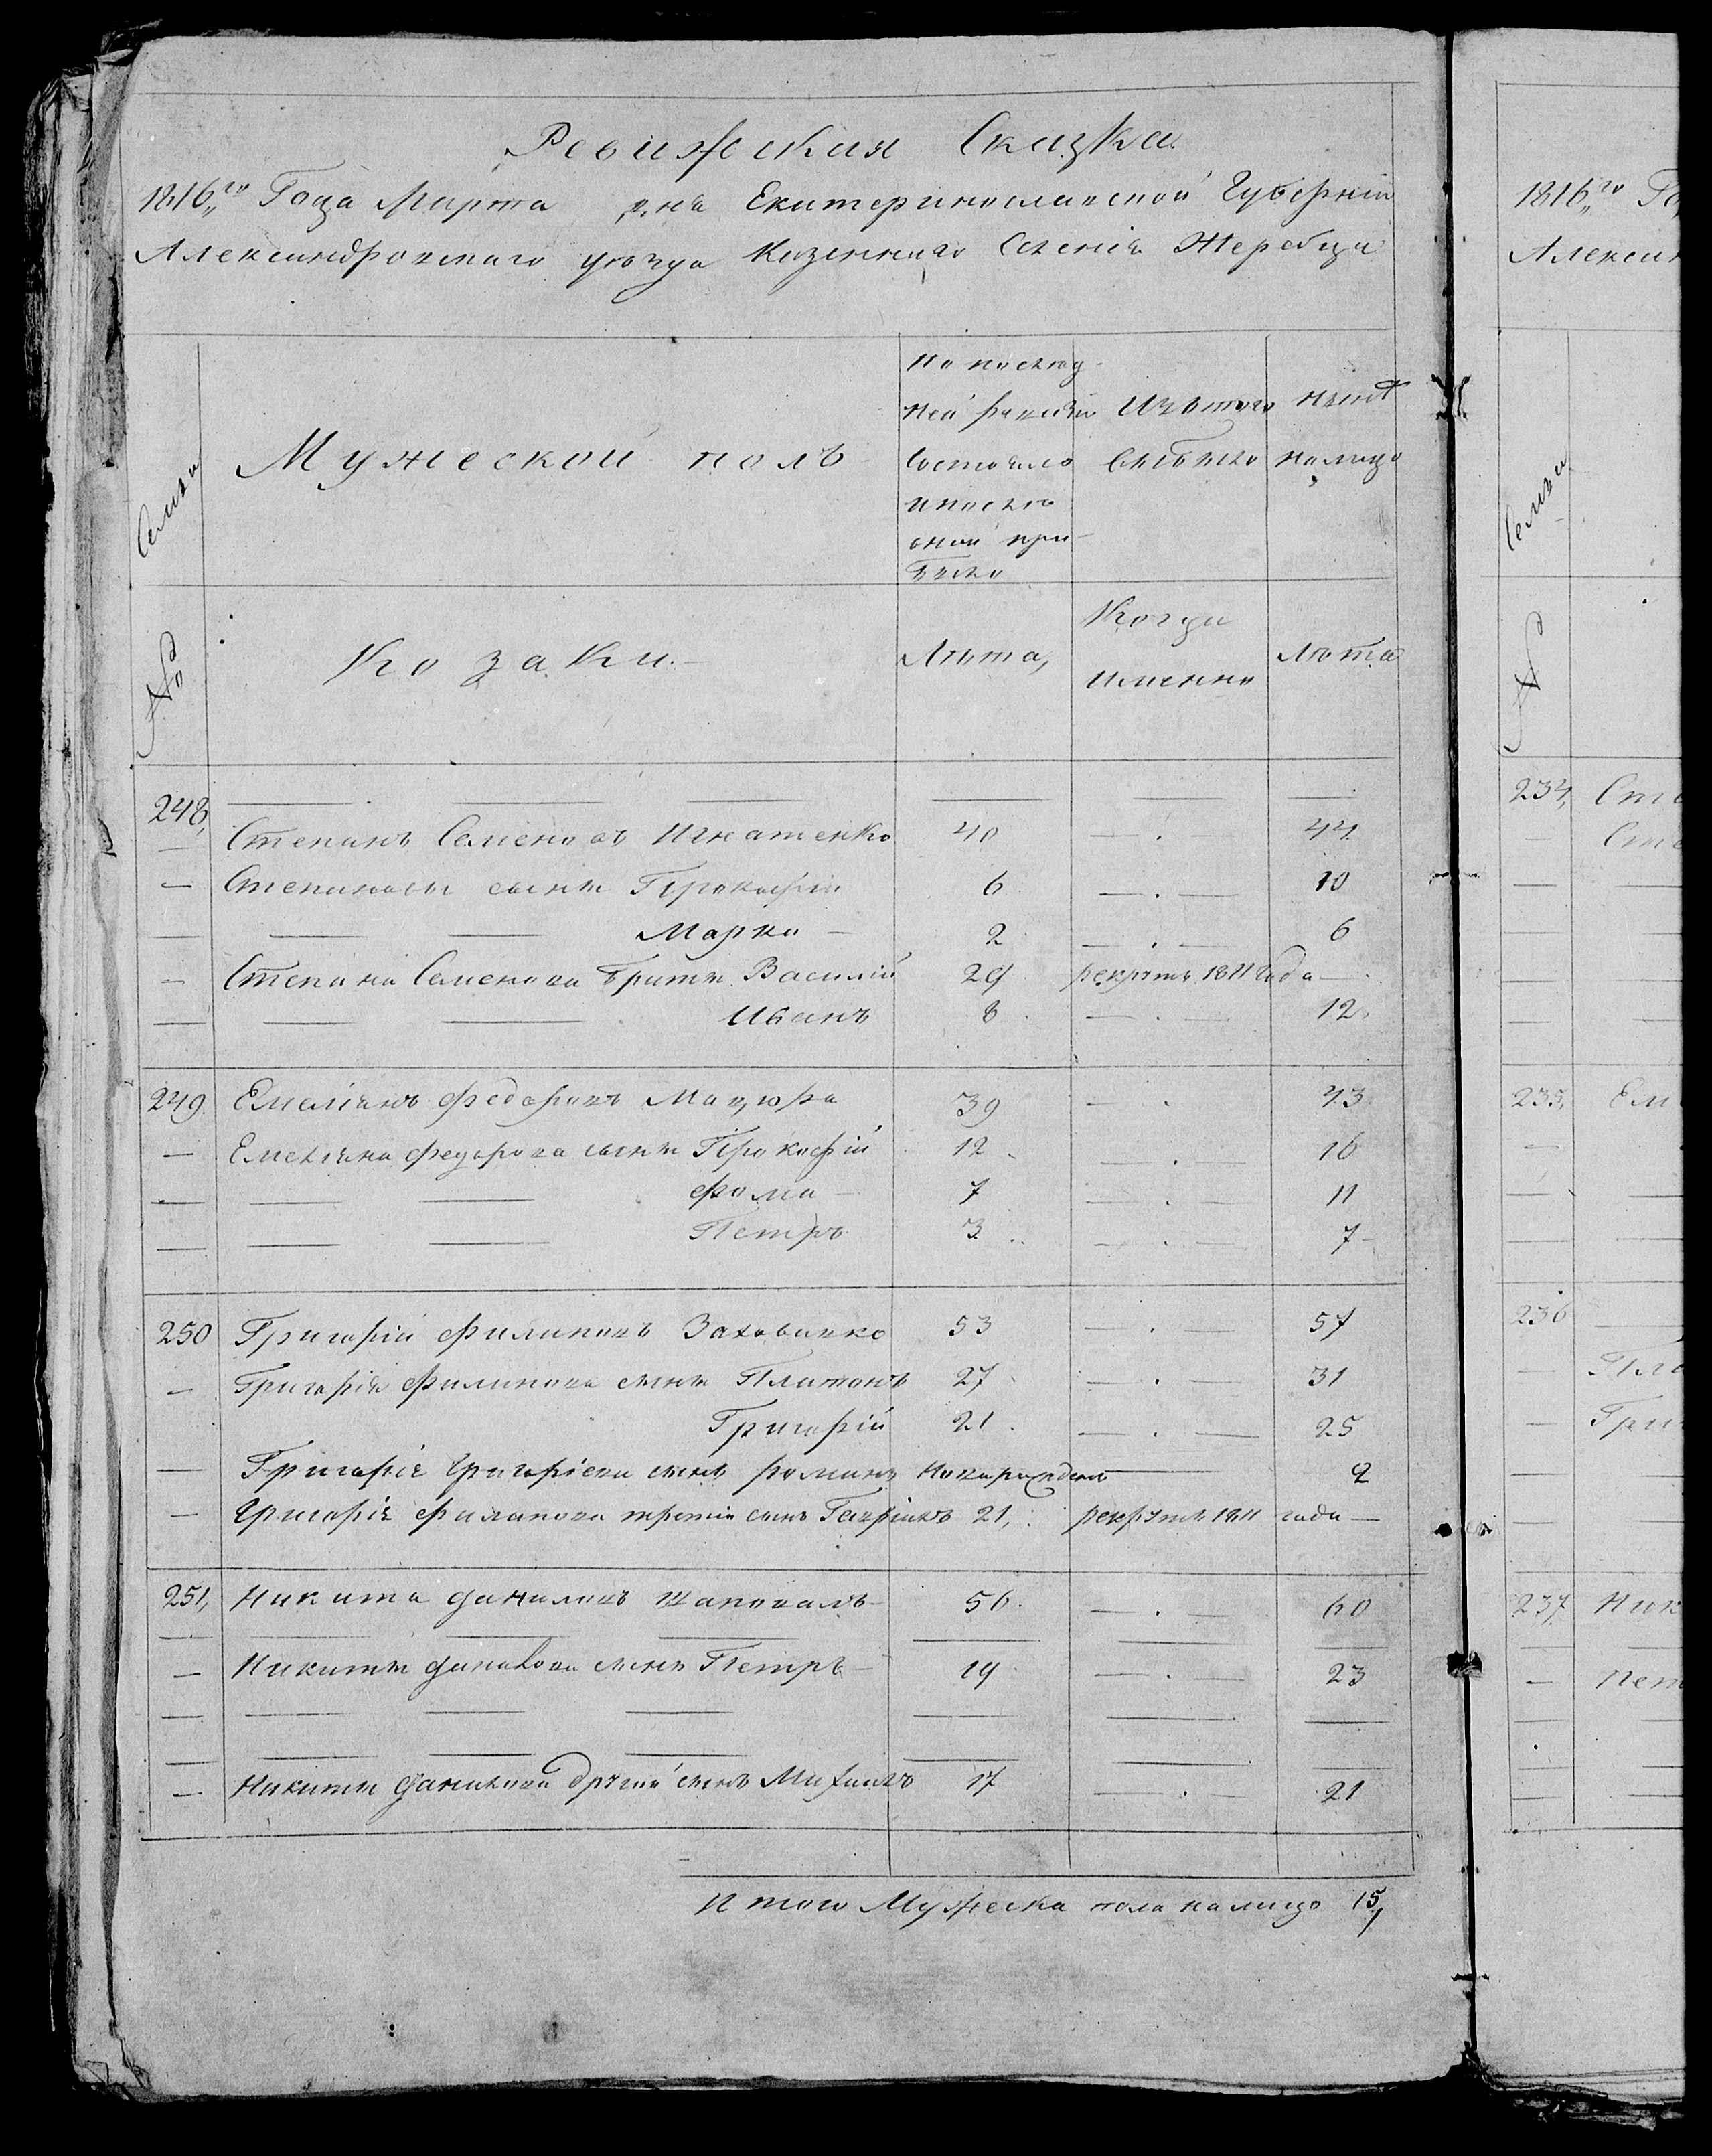 Ревижская Сказка
1816го Года Марта дня Екатеринославской Губернии
Александровского уезда Казенного Селения Жеребца
Семьи
Мужеской полъ
По послед
ней ревизіи
состояло
и после
оной при
было
Изъ того
выбыло
Ныне
на лицо
№
Козаки.
Лѣта,
Когда
именно
Лѣта
248, — — — — — —
— Степанъ Семеновъ Игнатенко 40 — . 44
— Степановы сыны Прокофій 6 — . — 10
— — — Марко — 2 — . — 6
— Степана Семенова братья Василій 29 рекрутъ 1811 Года —
— — — Иванъ 8 — . — 12.
249. Емелианъ Федоровъ Мацюра 39 — . 43
— Емеляна Федорова сыны Прокофій 12 — . — 16
— — — Фома — 7 — . — 11
— — — Петръ 3 — . — 7
250 Григорій Филиповъ 53 — . — 57
— Григорія Филипова сыны Платонъ 27 — . — 31
Григорій 21 — . — 25
— Григорія Григориева сынъ Романъ Новорожденъ — 2
— Григорія Филипова третій сынъ Гавріилъ 21, рекрутъ 1811 года —
251, Никита Даниловъ Шаповалъ — 56. — . — 60
— — — — — —
— Никиты Данилова сынъ Петръ — 19 — . — 23
— — — — — — —
— — — — — — —
— Никиты Данилова другий сынъ Михаилъ 17 — . — 21
Итого Мужеска пола на лицо 15,
1816го Го
Алексан
Семьи
№
234, Сте
— Сте
235, Ем
236
— Пла
— Гри
237 Ник
— Пет